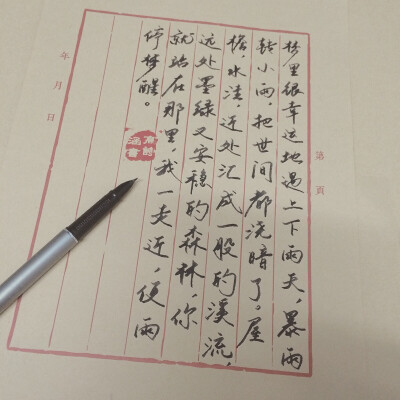 第 頁
梦里很幸运地遇上下雨天，暴雨
转小雨，把世间都浇暗了。屋
檐，水洼，近处汇成一股的溪流，
远处墨绿又安稳的森林，你
就站在那里，我一走近，便雨
停梦醒。
年 月 日